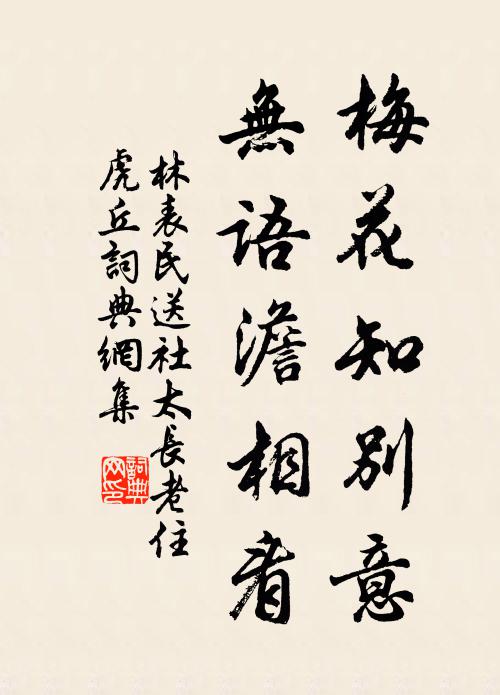 梅花知別意
無語澹相看
林表民送社太長老住
虎丘詞典網集
詞典网印